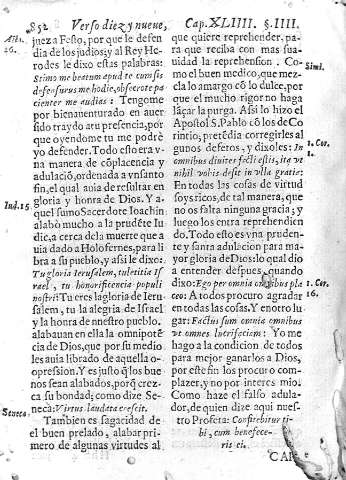 852 Verso diez y nueue,
Act.
26.
juez a Festo, por que le defen
dia de los judios; y al Rey He-
rodes le dixo estas palabras:
Stimo me beatum apud te cum sis
defensurus me hodie, obsecro te pa
cienter me audias: Tengome
por bienauenturado en auer
sido traydo a tu presencia, por
que oyendome tu me podrè
yo defender. Todo esto era v-
na manera de cõplacencia y
adulaciõ, ordenada a vn santo
fin, el qual auia de resultar en
gloria y honra de Dios. Y a-
Iud. 15
quel sumo Sacerdote Ioachin
alabò mucho a la prudẽte Iu-
dic, a cerca de la muerte que a
uia dado a Holofernes, para li
bra a su pueblo, y assi le dixo:
Tu gloria Ierusalem, tu letitia Is
rael, tu honorificentia populi
nostri: Tu eres la gloria de Ieru-
salem, tu la alegria de Israel
y la honra de nuestro pueblo.
alabauan en ella la omnipotẽ
cia de Dios, que por su medio
les auia librado de aquella o-
opression. Y es justo q̃ los bue
nos sean alabados, porq̃ crez-
ca su bondad; como dize Se-
Seneca
neca: Virtus laudata crescit.
Tambien es sagacidad de
el buen prelado, alabar pri-
mero de algunas virtudes al
Cap. XLIIII. §. IIII.
que quiere reprehender, pa-
ra que reciba con mas sua-
uidad la reprehension. Co-
Simi.
mo el buen medico, que mez-
cla lo amargo cõ lo dulce, por
que el mucho rigor no haga
lãçar la purga. Assi lo hizo el
Apostol S. Pablo cõ los de Co
rintio; pretẽdia corregirles al
1. Cor.
1.
gunos defetos, y dixoles: In
omnibus diuites facti estis, ita vt
nihil vobis desit in vlla gratia:
En todas las cosas de virtud
soys ricos, de tal manera, que
no os falta ninguna gracia; y
luego los entra reprehendien
do. Todo esto es vna pruden-
te y santa adulacion para ma-
yor gloria de Dios: lo qual dio
a entender despues, quando
1. Cor.
16.
dixo: Ego per omnia omnibus pla
ceo: A todos procuro agradar
en todas las cosas. Y en otro lu
gar: Factus sum omnia omnibus
vt omnes lucrifaciem: Yo me
hago a la condicion de todos
para mejor ganarlos a Dios,
por este fin los procuro com-
plazer, y no por interes mio.
Como haze el falso adula-
dor, de quien dize aqui nues-
tro Profeta: Confitebitur ti-
bi, cum benefece-
ris ei.
CAP.